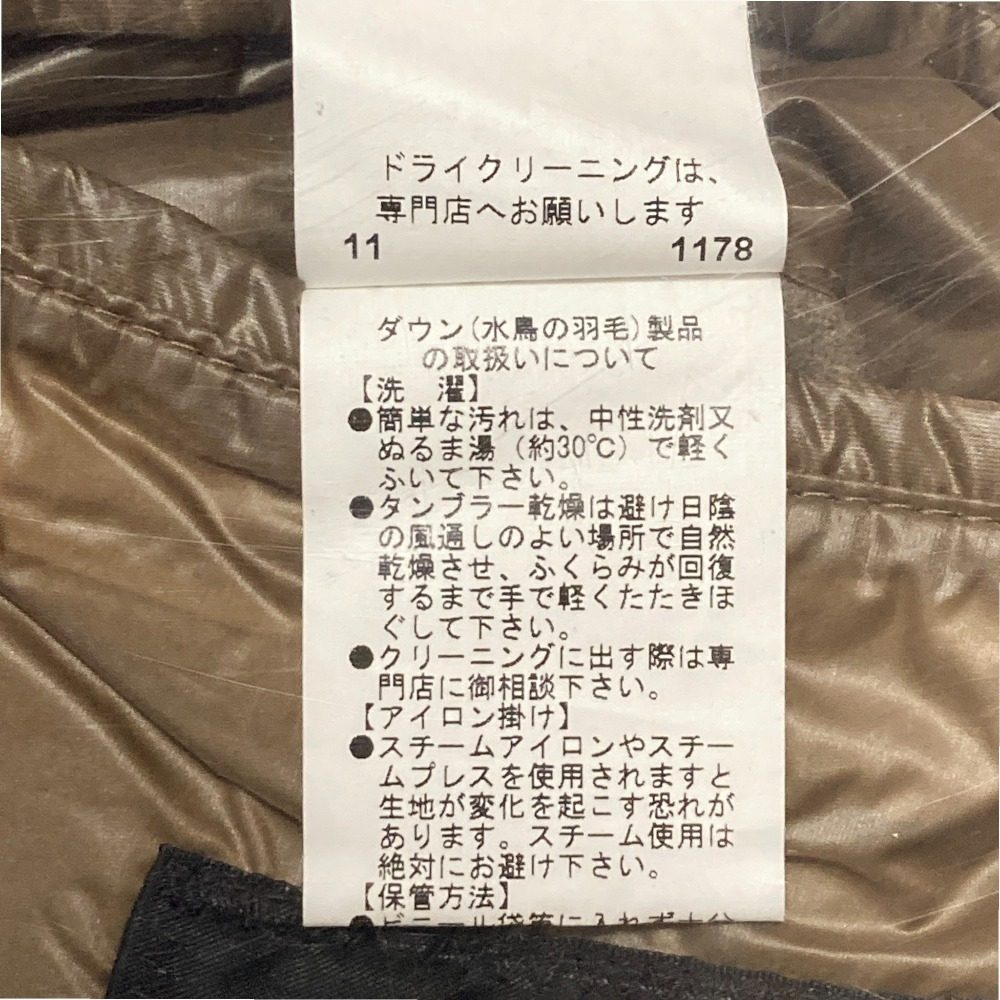 ドライクリーニングは、
専門店へお願いします
11 1178
ダウン(水鳥の羽毛)製品
の取扱いについて
【洗 濯】
●簡単な汚れは、中性洗剤又
ぬるま湯(約30℃)で軽く
ふいて下さい。
●タンブラー乾燥は避け日陰
の風通しのよい場所で自然
乾燥させ、ふくらみが回復
するまで手で軽くたたきほ
ぐして下さい。
●クリーニングに出す際は専
門店に御相談下さい。
【アイロン掛け】
●スチームアイロンやスチー
ムプレスを使用されますと
生地が変化を起こす恐れが
あります。スチーム使用は
絶対にお避け下さい。
【保管方法】
●ビニール袋等に入れず十分